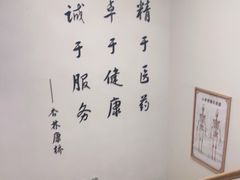 精于医药
卓于健康
诚于服务
——杏林康桥